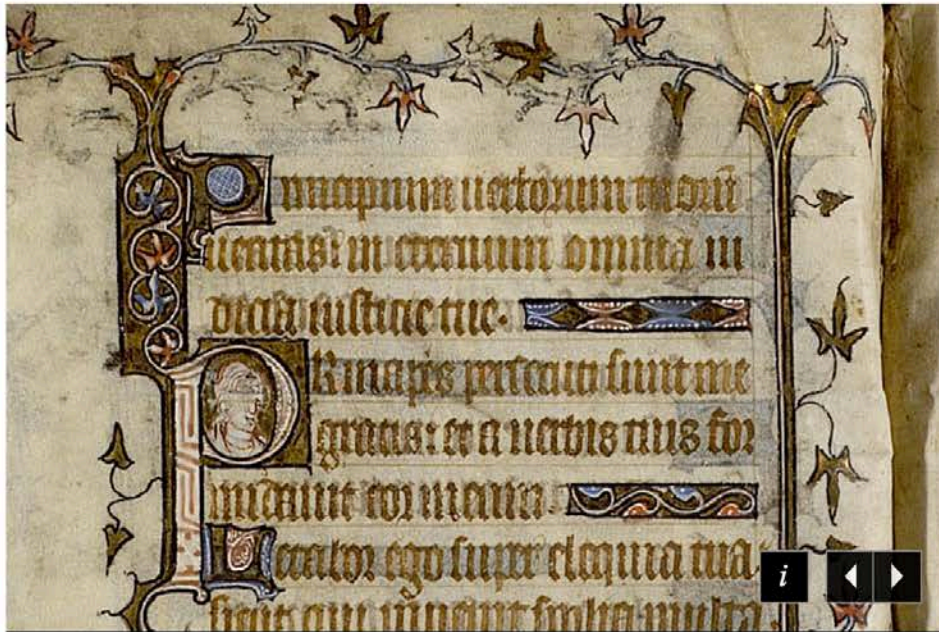 Principium uerborum tuorū
ueritas: in eternum omnia iu
dicia iusticie tue.
PRincipes persecuti sunt me
gratis: et a uerbis tuis for
midauit cor meum.
Letabor ego super eloquia tua
sicut qui inuenit spolia multa.
i